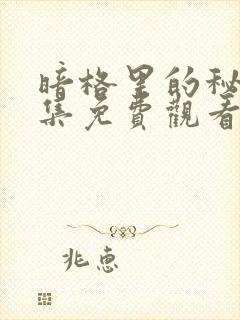 暗格里的秘
集免費觀看
兆惠